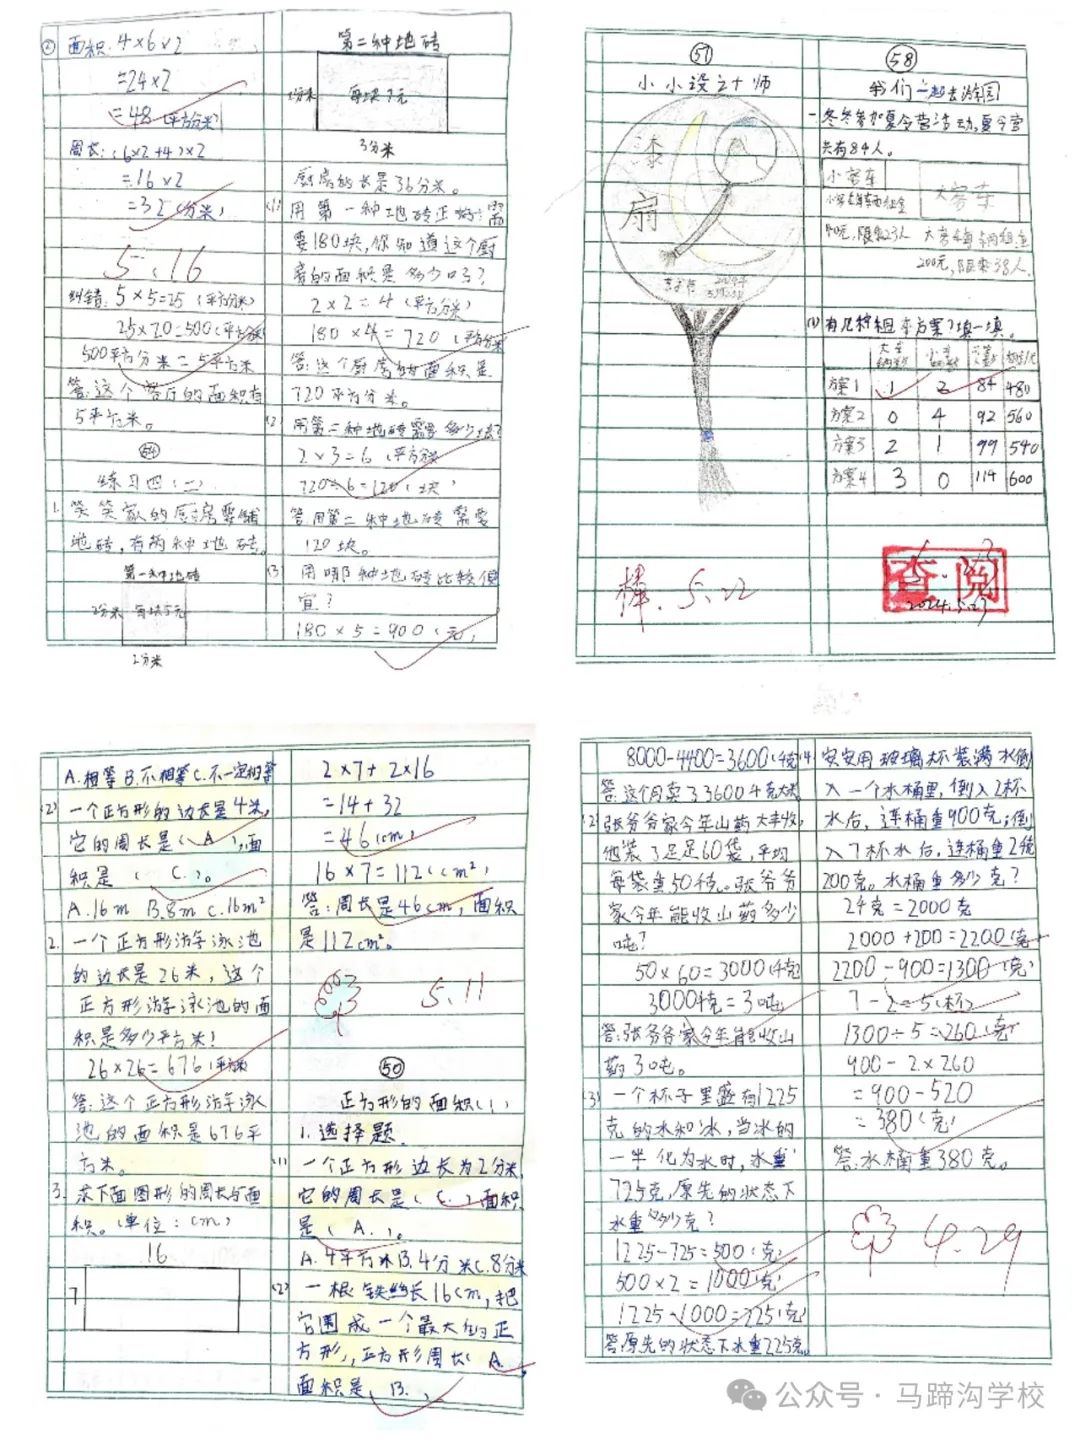 ② 面积:4×6×2
=24×2
=48(平方分米)
周长:(6×2+4)×2
=16×2
=32(分米)
5.16
纠错:5×5=25(平方分米)
25×20=500(平方分米)
500平方分米=5平方米
答:这个客厅的面积有
5平方米。
54
练习四(二)
1. 笑笑家的厨房要铺
地砖,有两种地砖。
第一种地砖
2分米 每块5元
2分米
第二种地砖
2分米 每块7元
3分米
厨房的长是36分米。
(1) 用第一种地砖正好需
要180块,你知道这个厨
房的面积是多少吗?
2×2=4(平方分米)
180×4=720(平方分米)
答:这个厨房的面积是
720平方分米。
(2) 用第二种地砖需要多少块?
2×3=6(平方分米)
720÷6=120(块)
答:用第二种地砖需要
120块。
(3) 用哪种地砖比较便
宜?
180×5=900(元)
57
小小设计师
漆
扇
棒.5.22
58
我们一起去游园
一冬冬参加夏令营活动,夏令营
共有84人。
小客车
大客车
限乘23人
200元,限乘38人
(1) 有几种租车方案?填一填。
方案1 1 2 84 480
方案2 0 4 92 560
方案3 2 1 99 540
方案4 3 0 114 600
查阅
2024.5.23
A.相等 B.不相等 C.不一定相等
(2) 一个正方形的边长是4米,
它的周长是( A ),面
积是( C )。
A.16m B.8m C.16m²
2. 一个正方形游泳池
的边长是26米,这个
正方形游泳池的面
积是多少平方米?
26×26=676(平方米)
答:这个正方形游泳
池的面积是676平
方米。
3. 求下面图形的周长与面
积。(单位:cm)
16
7
2×7+2×16
=14+32
=46(cm)
16×7=112(cm²)
答:周长是46cm,面积
是112cm²。
5.11
50
正方形的面积(1)
1.选择题.
(1) 一个正方形边长为2分米,
它的周长是( C ),面积
是( A )。
A.4平方分米 B.4分米 C.8分米
(2) 一根铁丝长16cm,把
它围成一个最大的正
方形,正方形周长( A )
面积是( B )
8000-4400=3600(千克)
答:这个月卖了3600千克大米
(2) 张爷爷家今年山药大丰收,
他装了足足60袋,平均
每袋重50千克。张爷爷
家今年能收山药多少
吨?
50×60=3000(千克)
3000千克=3吨
答:张爷爷家今年能收山
药3吨。
(3) 一个杯子里盛有1225
克的水和冰,当冰的
一半化为水时,水重
725克,原先的状态下
水重多少克?
1225-725=500(克)
500×2=1000(克)
1225-1000=225(克)
答:原先的状态下水重225克。
(4) 安安用玻璃杯装满水倒
入一个水桶里,倒入2杯
水后,连桶重900克;倒
入7杯水后,连桶重2千克
200克。水桶重多少克?
2千克=2000克
2000+200=2200(克)
2200-900=1300(克)
7-2=5(杯)
1300÷5=260(克)
900-2×260
=900-520
=380(克)
答:水桶重380克。
4.29
公众号·马蹄沟学校